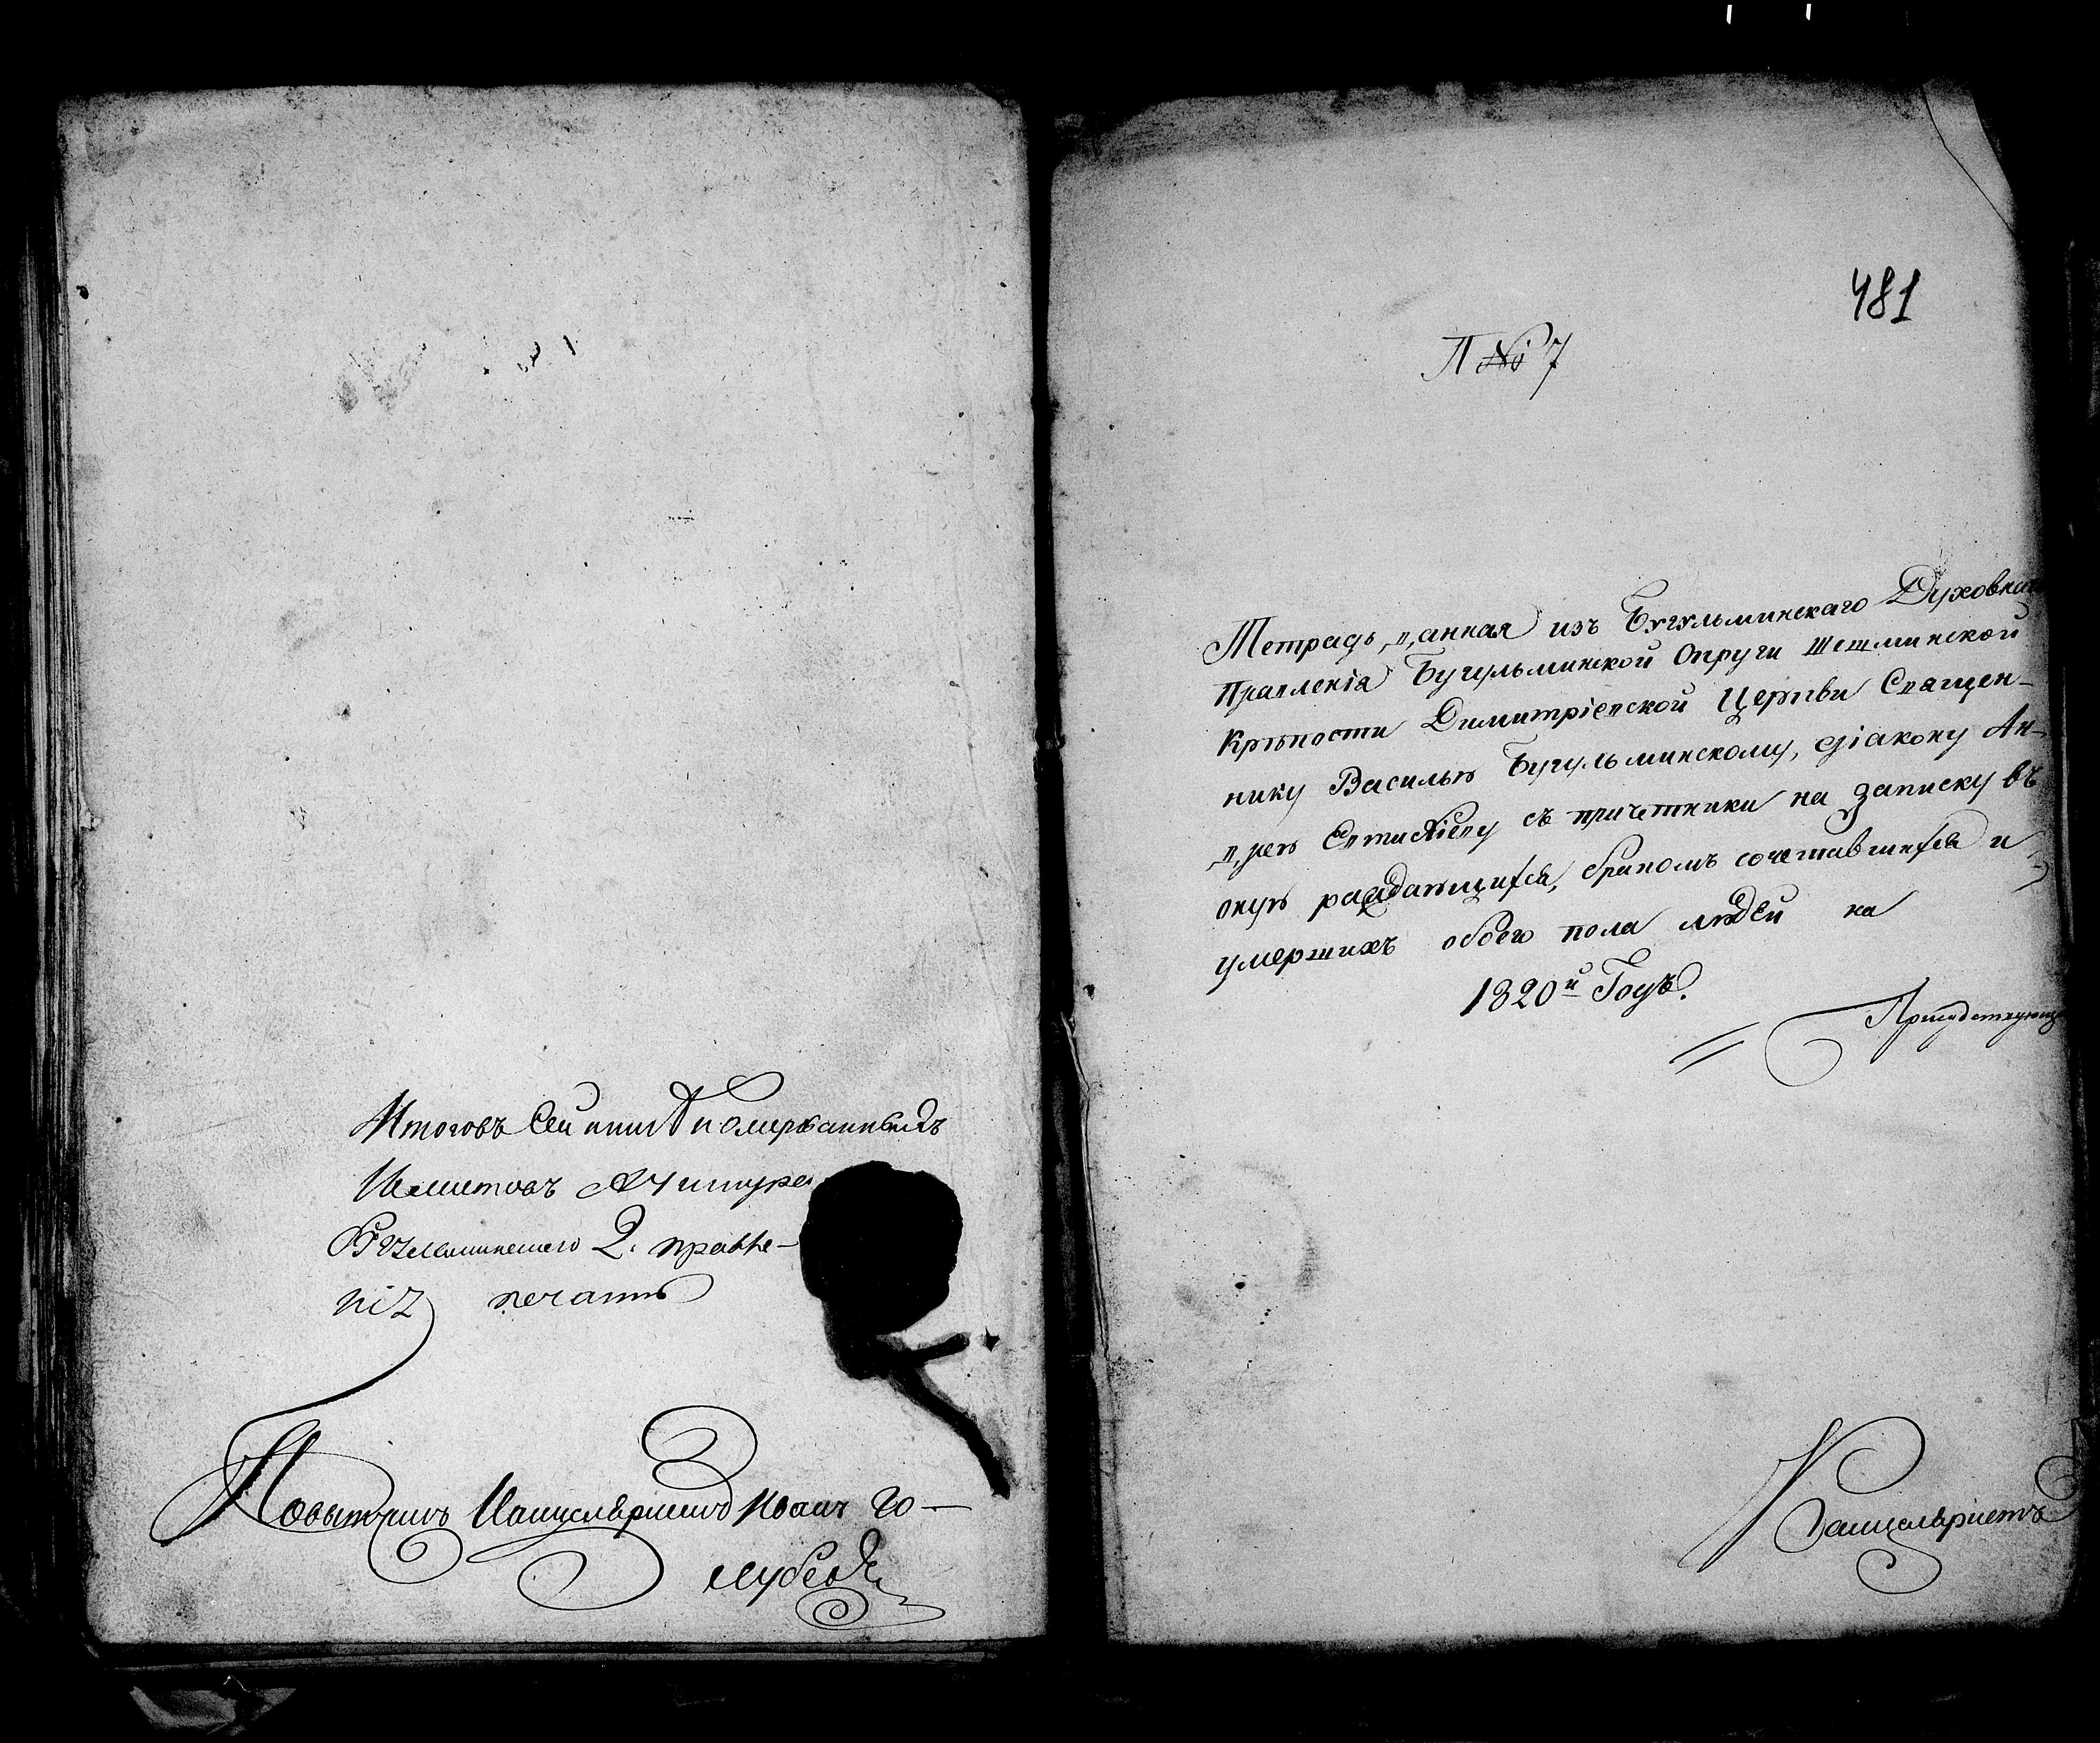 Итоговъ сей книги нумерованныхъ
листовъ А у шнура
Бугульминскаго Д. правле-
нія печать
Повытчикъ Канцеляристъ Иоанъ Го-
лубевъ
481
П № 7
Тетрадь, данная изъ Бугульминскаго Духовнаго
Правленія Бугульминской Округи Шешминской
Крѣпости Димитріевской Церкви Священ-
нику Василью Бугульминскому, діакону Ан-
дрею съ причетники на записку въ
оную раждающихся, бракомъ сочетавшихся и
умершихъ обоего пола людей на
1820й Годъ.
Присудствующ
Канцеляристъ